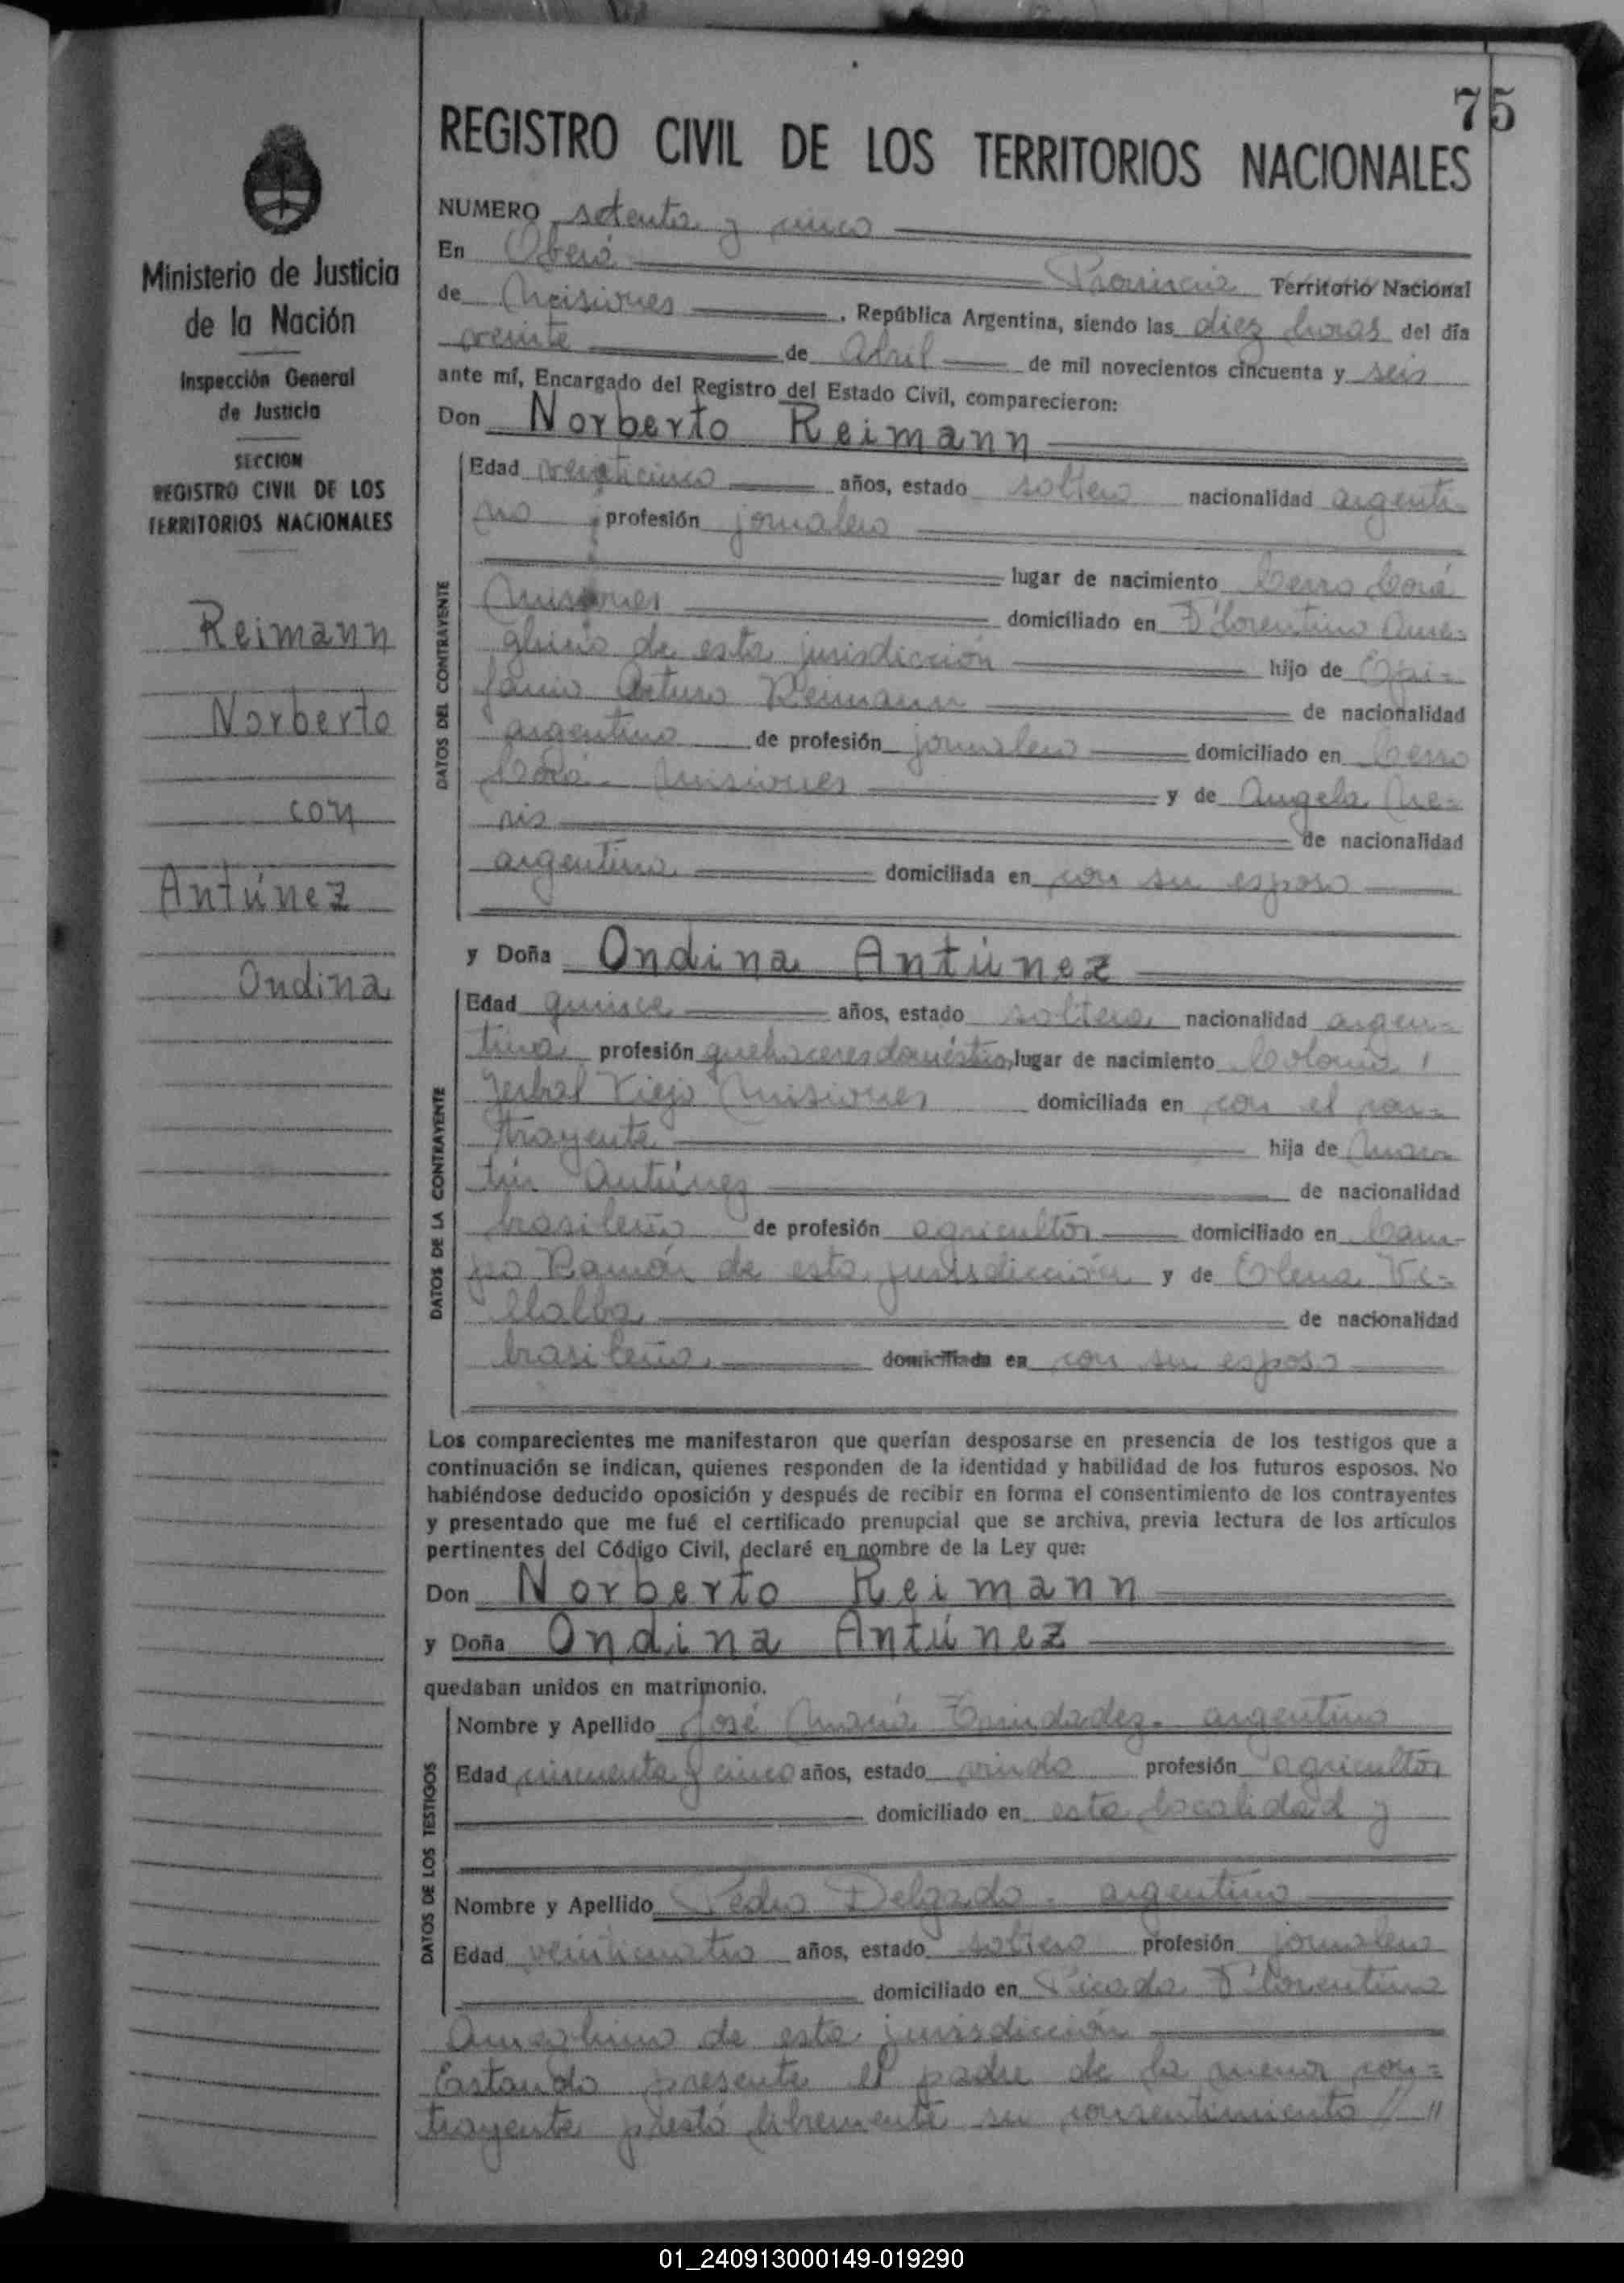 75
REGISTRO CIVIL DE LOS TERRITORIOS NACIONALES
NUMERO setenta y cinco
En Oberá Provincia Territorio Nacional
de Misiones , República Argentina, siendo las diez horas del día
veinte de Abril de mil novecientos cincuenta y seis
ante mí, Encargado del Registro del Estado Civil, comparecieron:
Don Norberto Reimann
Edad veinticinco años, estado soltero nacionalidad argenti-
no profesión jornalero
lugar de nacimiento Cerro Corá
Misiones domiciliado en Florentino Ame-
ghino de esta jurisdicción hijo de Epi-
fanio Arturo Reimann de nacionalidad
argentino de profesión jornalero domiciliado en Cerro
Corá - Misiones y de Angela Ne-
ris de nacionalidad
argentina domiciliada en con su esposo
y Doña Ondina Antúnez
Edad quince años, estado soltera nacionalidad argen-
tina profesión quehaceres domésticos, lugar de nacimiento Colonia
Yerbal Viejo Misiones domiciliada en con el con-
trayente hija de Mar
tín Antúnez de nacionalidad
brasileño de profesión agricultor domiciliado en Cam-
po Ramón de esta jurisdicción y de Elena Vi-
llalba de nacionalidad
brasileña domiciliada en con su esposo
Los comparecientes me manifestaron que querían desposarse en presencia de los testigos que a
continuación se indican, quienes responden de la identidad y habilidad de los futuros esposos. No
habiéndose deducido oposición y después de recibir en forma el consentimiento de los contrayentes
y presentado que me fué el certificado prenupcial que se archiva, previa lectura de los artículos
pertinentes del Código Civil, declaré en nombre de la Ley que:
Don Norberto Reimann
y Doña Ondina Antúnez
quedaban unidos en matrimonio.
Nombre y Apellido José María Trindadez - argentino
Edad cincuenta y cinco años, estado viudo profesión agricultor
domiciliado en esta localidad y
Nombre y Apellido Pedro Delgado - argentino
Edad veinticuatro años, estado soltero profesión jornalero
domiciliado en Picada Florentino
Ameghino de esta jurisdicción
Estando presente el padre de la menor con-
trayente prestó libremente su consentimiento // "
DATOS DEL CONTRAYENTE
DATOS DE LA CONTRAYENTE
DATOS DE LOS TESTIGOS
Ministerio de Justicia
de la Nación
Inspección General
de Justicia
SECCION
REGISTRO CIVIL DE LOS
TERRITORIOS NACIONALES
Reimann
Norberto
con
Antúnez
Ondina
01_240913000149-019290